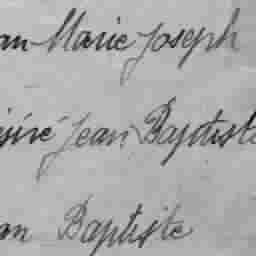 an Marie Joseph
siré Jean Baptiste
an Baptiste